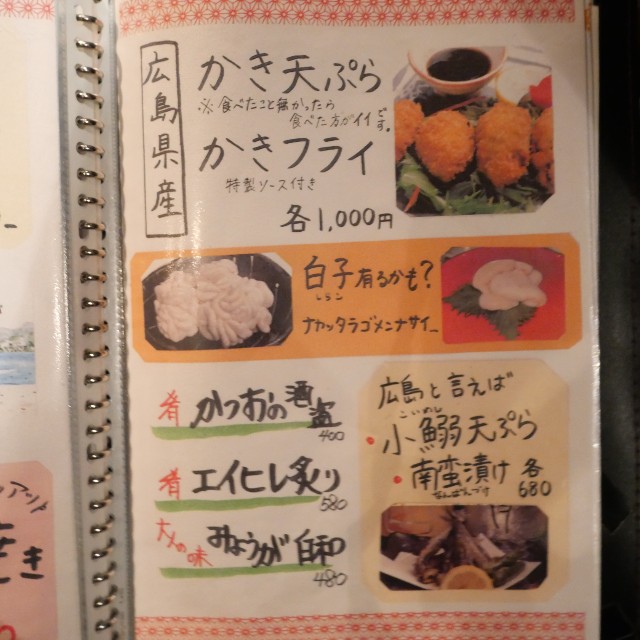 広島県産
かき天ぷら
※食べたこと無かったら
食べた方がイイです。
かきフライ
特製ソース付き
各1,000円
白子有るかも?
シラコ
ナカッタラゴメンナサイー
肴 かつおの酒盗
400
肴 エイヒレ炙り
580
大人の味 みょうが白和
480
広島と言えば
こいわし
・小鰯天ぷら
・南蛮漬け 各
なんばんづけ 680
き